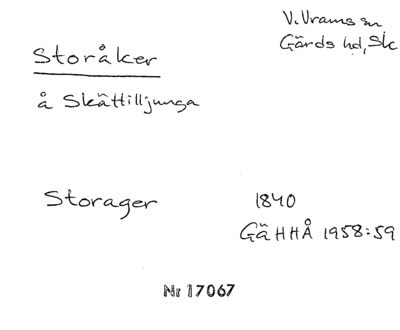 V. Vrams sn
Gärds hd, Sk
Storåker
å Skättilljunga
Storager 1840
Gä HHÅ 1958:59
Nr 17067